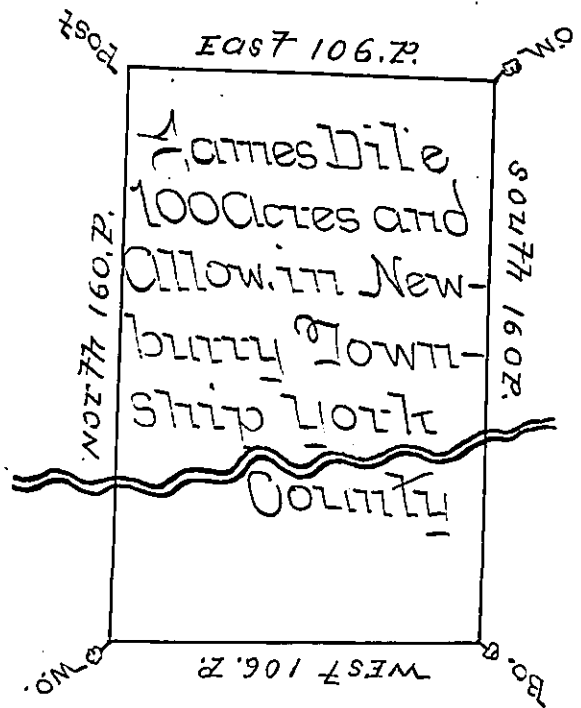 Post
EAST 106.P.
W.O.
James Dile
100 Acres and
Allow. in New-
burry Town-
ship York
County
NORTH 160.P.
SOUTH 160P.
W.O.
WEST 106.P.
Bo.